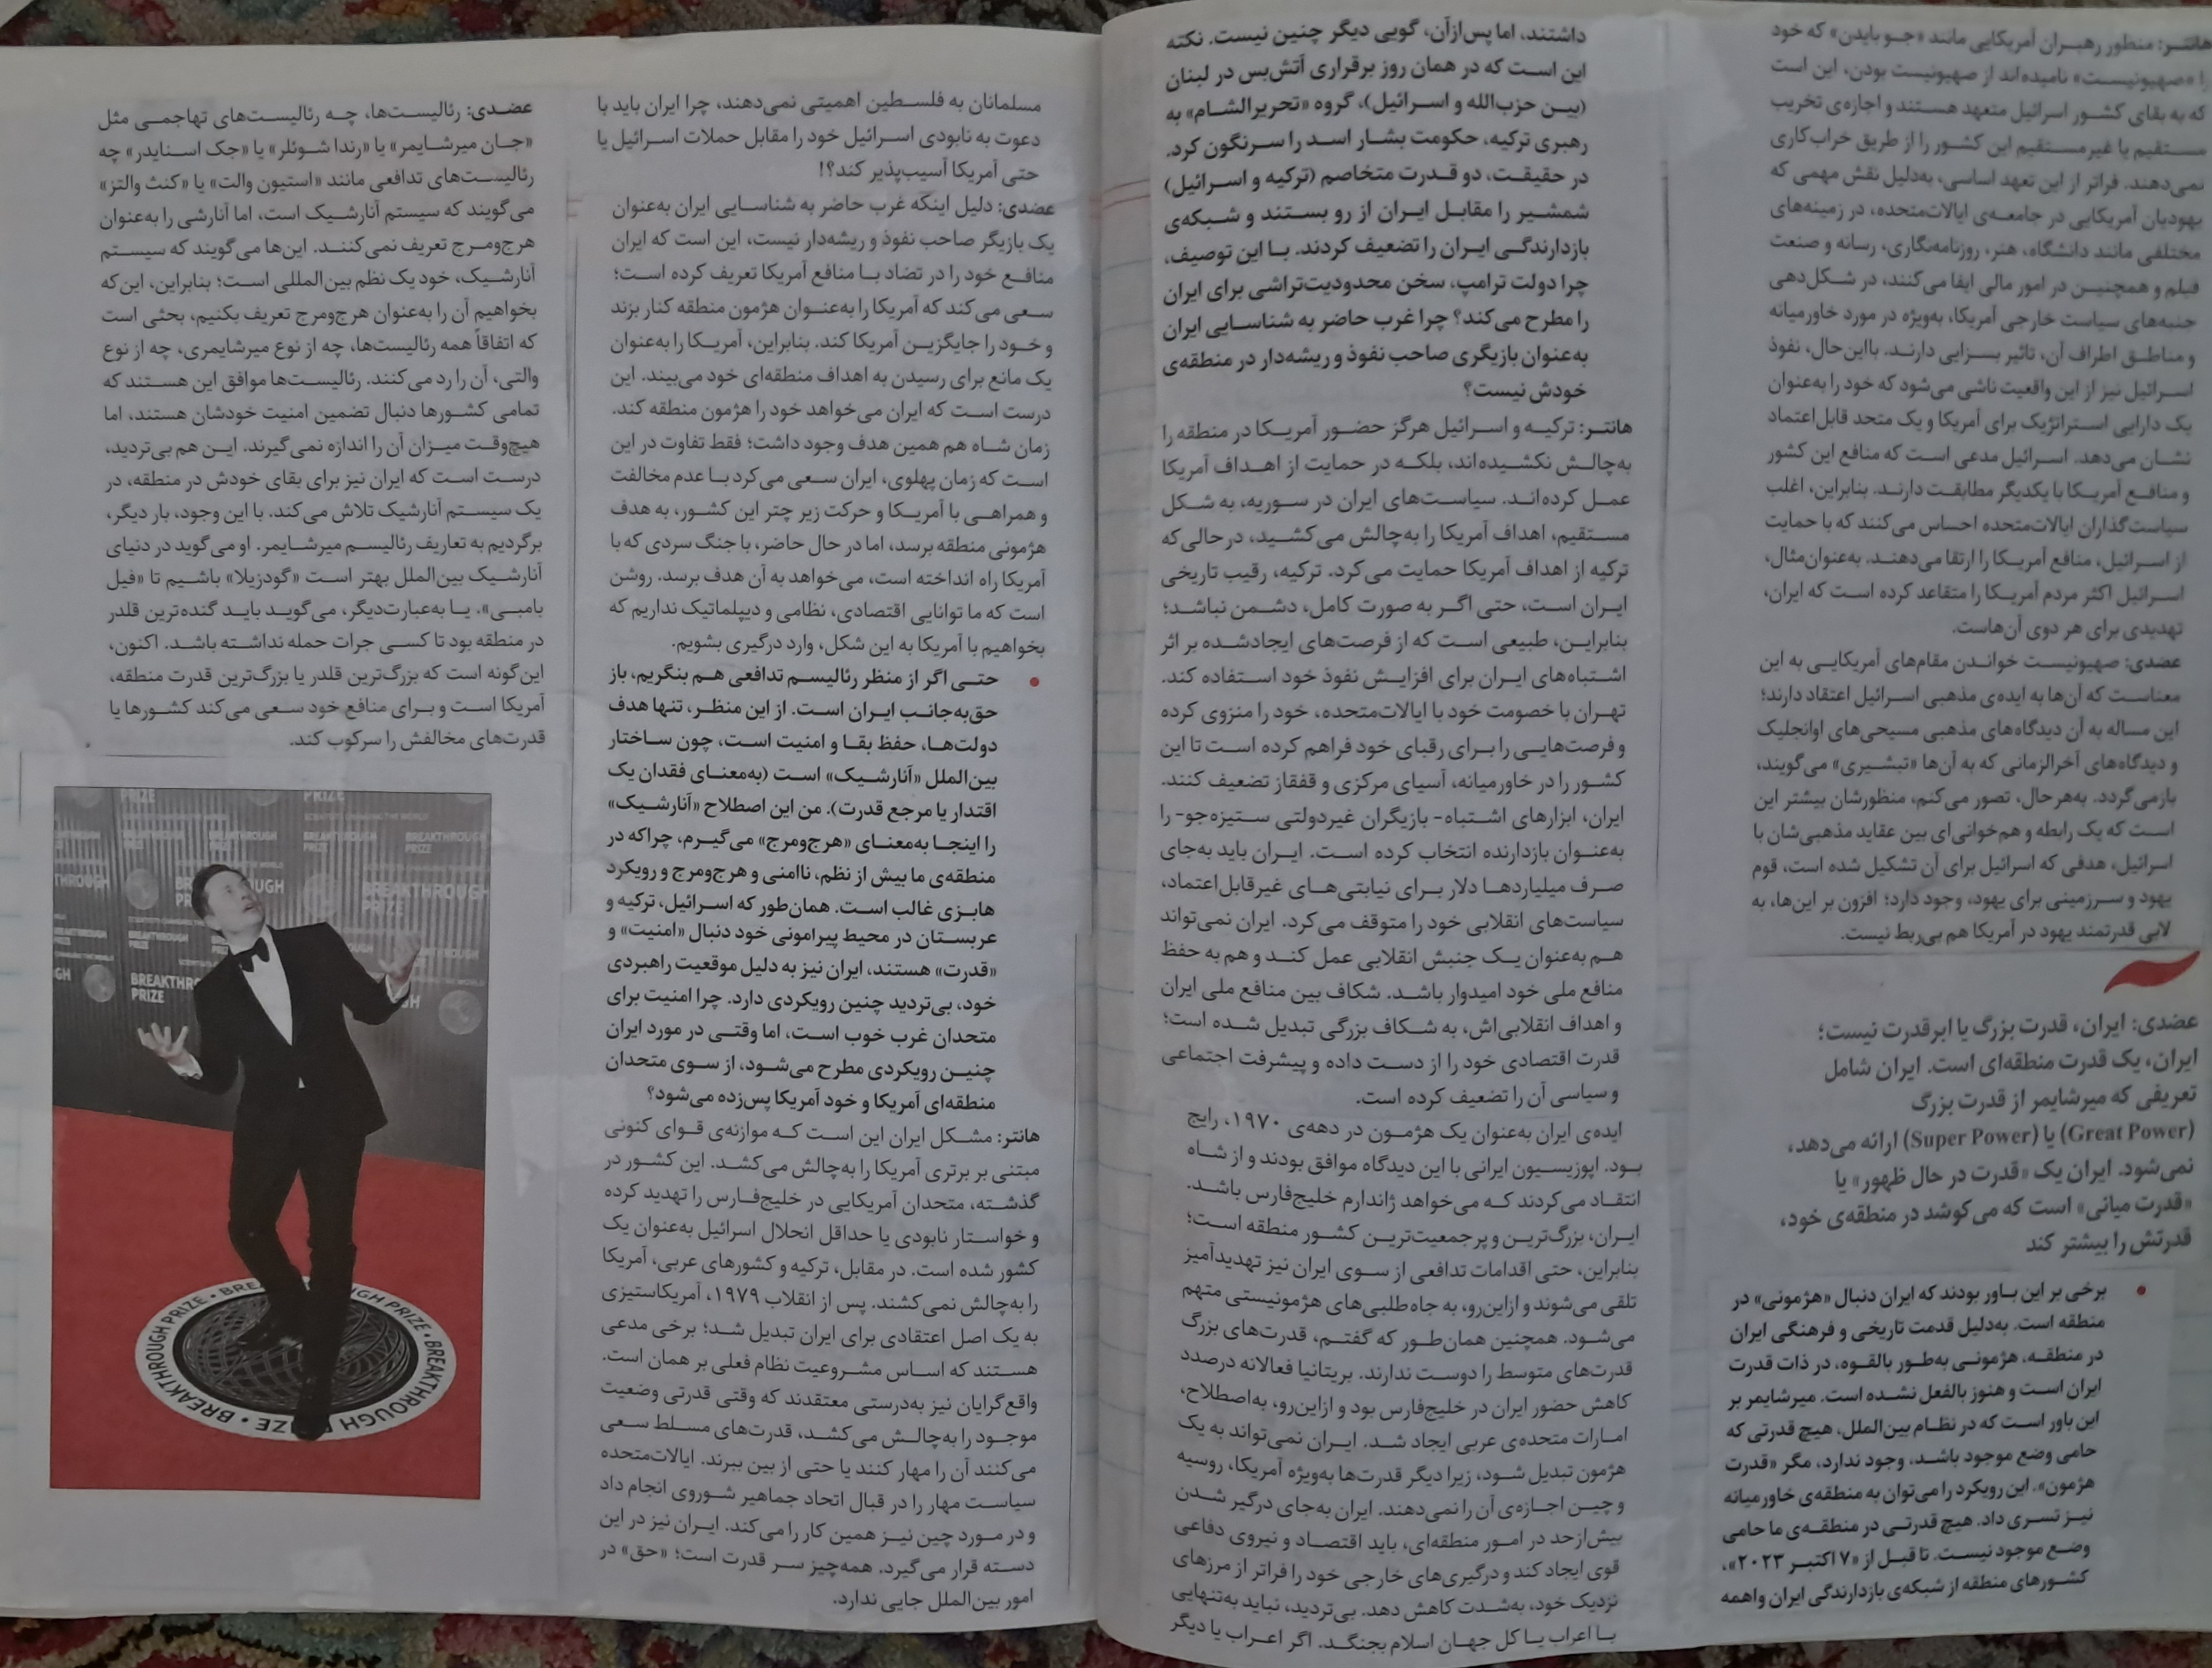 هانتر: منظور رهبران آمریکایی مانند «جو بایدن» که خود
را «صهیونیست» نامیده‌اند از صهیونیست بودن، این است
که به بقای کشور اسرائیل متعهد هستند و اجازه‌ی تخریب
مستقیم یا غیرمستقیم این کشور را از طریق خراب‌کاری
نمی‌دهند. فراتر از این تعهد اساسی، به‌دلیل نقش مهمی که
یهودیان آمریکایی در جامعه‌ی ایالات‌متحده، در زمینه‌های
مختلفی مانند دانشگاه، هنر، روزنامه‌نگاری، رسانه و صنعت
فیلم و همچنین در امور مالی ایفا می‌کنند، در شکل‌دهی
جنبه‌های سیاست خارجی آمریکا، به‌ویژه در مورد خاورمیانه
و مناطق اطراف آن، تاثیر بسزایی دارند. بااین‌حال، نفوذ
اسرائیل نیز از این واقعیت ناشی می‌شود که خود را به‌عنوان
یک دارایی استراتژیک برای آمریکا و یک متحد قابل‌اعتماد
نشان می‌دهد. اسرائیل مدعی است که منافع این کشور
و منافع آمریکا با یکدیگر مطابقت دارند. بنابراین، اغلب
سیاست‌گذاران ایالات‌متحده احساس می‌کنند که با حمایت
از اسرائیل، منافع آمریکا را ارتقا می‌دهند. به‌عنوان‌مثال،
اسرائیل اکثر مردم آمریکا را متقاعد کرده است که ایران،
تهدیدی برای هر دوی آن‌هاست.
عضدی: صهیونیست خواندن مقام‌های آمریکایی به این
معناست که آن‌ها به ایده‌ی مذهبی اسرائیل اعتقاد دارند؛
این مساله به آن دیدگاه‌های مذهبی مسیحی‌های اوانجلیک
و دیدگاه‌های آخرالزمانی که به آن‌ها «تبشیری» می‌گویند،
بازمی‌گردد. به‌هرحال، تصور می‌کنم، منظورشان بیشتر این
است که یک رابطه و هم‌خوانی‌ای بین عقاید مذهبی‌شان با
اسرائیل، هدفی که اسرائیل برای آن تشکیل شده است، قوم
یهود و سرزمینی برای یهود، وجود دارد؛ افزون بر این‌ها، به
لابی قدرتمند یهود در آمریکا هم بی‌ربط نیست.
عضدی: ایران، قدرت بزرگ یا ابرقدرت نیست؛
ایران، یک قدرت منطقه‌ای است. ایران شامل
تعریفی که میرشایمر از قدرت بزرگ
(Great Power) یا (Super Power) ارائه می‌دهد،
نمی‌شود. ایران یک «قدرت در حال ظهور» یا
«قدرت میانی» است که می‌کوشد در منطقه‌ی خود،
قدرتش را بیشتر کند
• برخی بر این باور بودند که ایران دنبال «هژمونی» در
منطقه است. به‌دلیل قدمت تاریخی و فرهنگی ایران
در منطقه، هژمونی به‌طور بالقوه، در ذات قدرت
ایران است و هنوز بالفعل نشده است. میرشایمر بر
این باور است که در نظام بین‌الملل، هیچ قدرتی که
حامی وضع موجود باشد، وجود ندارد، مگر «قدرت
هژمون». این رویکرد را می‌توان به منطقه‌ی خاورمیانه
نیز تسری داد. هیچ قدرتی در منطقه‌ی ما حامی
وضع موجود نیست. تا قبل از «۷ اکتبر ۲۰۲۳»،
کشورهای منطقه از شبکه‌ی بازدارندگی ایران واهمه
داشتند، اما پس‌ازآن، گویی دیگر چنین نیست. نکته
این است که در همان روز برقراری آتش‌بس در لبنان
(بین حزب‌الله و اسرائیل)، گروه «تحریرالشام» به
رهبری ترکیه، حکومت بشار اسد را سرنگون کرد.
در حقیقت، دو قدرت متخاصم (ترکیه و اسرائیل)
شمشیر را مقابل ایران از رو بستند و شبکه‌ی
بازدارندگی ایران را تضعیف کردند. با این توصیف،
چرا دولت ترامپ، سخن محدودیت‌تراشی برای ایران
را مطرح می‌کند؟ چرا غرب حاضر به شناسایی ایران
به‌عنوان بازیگری صاحب نفوذ و ریشه‌دار در منطقه‌ی
خودش نیست؟
هانتر: ترکیه و اسرائیل هرگز حضور آمریکا در منطقه را
به‌چالش نکشیده‌اند، بلکه در حمایت از اهداف آمریکا
عمل کرده‌اند. سیاست‌های ایران در سوریه، به شکل
مستقیم، اهداف آمریکا را به‌چالش می‌کشید، درحالی‌که
ترکیه از اهداف آمریکا حمایت می‌کرد. ترکیه، رقیب تاریخی
ایران است، حتی اگر به صورت کامل، دشمن نباشد؛
بنابراین، طبیعی است که از فرصت‌های ایجادشده بر اثر
اشتباه‌های ایران برای افزایش نفوذ خود استفاده کند.
تهران با خصومت خود با ایالات‌متحده، خود را منزوی کرده
و فرصت‌هایی را برای رقبای خود فراهم کرده است تا این
کشور را در خاورمیانه، آسیای مرکزی و قفقاز تضعیف کنند.
ایران، ابزارهای اشتباه- بازیگران غیردولتی ستیزه‌جو- را
به‌عنوان بازدارنده انتخاب کرده است. ایران باید به‌جای
صرف میلیاردها دلار برای نیابتی‌های غیرقابل‌اعتماد،
سیاست‌های انقلابی خود را متوقف می‌کرد. ایران نمی‌تواند
هم به‌عنوان یک جنبش انقلابی عمل کند و هم به حفظ
منافع ملی خود امیدوار باشد. شکاف بین منافع ملی ایران
و اهداف انقلابی‌اش، به شکاف بزرگی تبدیل شده است؛
قدرت اقتصادی خود را از دست داده و پیشرفت اجتماعی
و سیاسی آن را تضعیف کرده است.
ایده‌ی ایران به‌عنوان یک هژمون در دهه‌ی ۱۹۷۰، رایج
بود. اپوزیسیون ایرانی با این دیدگاه موافق بودند و از شاه
انتقاد می‌کردند که می‌خواهد ژاندارم خلیج‌فارس باشد.
ایران، بزرگ‌ترین و پرجمعیت‌ترین کشور منطقه است؛
بنابراین، حتی اقدامات تدافعی از سوی ایران نیز تهدیدآمیز
تلقی می‌شوند و ازاین‌رو، به جاه‌طلبی‌های هژمونیستی متهم
می‌شود. همچنین همان‌طور که گفتم، قدرت‌های بزرگ
قدرت‌های متوسط را دوست ندارند. بریتانیا فعالانه درصدد
کاهش حضور ایران در خلیج‌فارس بود و ازاین‌رو، به‌اصطلاح،
امارات متحده‌ی عربی ایجاد شد. ایران نمی‌تواند به یک
هژمون تبدیل شود، زیرا دیگر قدرت‌ها به‌ویژه آمریکا، روسیه
و چین اجازه‌ی آن را نمی‌دهند. ایران به‌جای درگیر شدن
بیش‌ازحد در امور منطقه‌ای، باید اقتصاد و نیروی دفاعی
قوی ایجاد کند و درگیری‌های خارجی خود را فراتر از مرزهای
نزدیک خود، به‌شدت کاهش دهد. بی‌تردید، نباید به‌تنهایی
با اعراب یا کل جهان اسلام بجنگد. اگر اعراب یا دیگر
مسلمانان به فلسطین اهمیتی نمی‌دهند، چرا ایران باید با
دعوت به نابودی اسرائیل خود را مقابل حملات اسرائیل یا
حتی آمریکا آسیب‌پذیر کند؟!
عضدی: دلیل اینکه غرب حاضر به شناسایی ایران به‌عنوان
یک بازیگر صاحب نفوذ و ریشه‌دار نیست، این است که ایران
منافع خود را در تضاد با منافع آمریکا تعریف کرده است؛
سعی می‌کند که آمریکا را به‌عنوان هژمون منطقه کنار بزند
و خود را جایگزین آمریکا کند. بنابراین، آمریکا را به‌عنوان
یک مانع برای رسیدن به اهداف منطقه‌ای خود می‌بیند. این
درست است که ایران می‌خواهد خود را هژمون منطقه کند.
زمان شاه هم همین هدف وجود داشت؛ فقط تفاوت در این
است که زمان پهلوی، ایران سعی می‌کرد با عدم مخالفت
و همراهی با آمریکا و حرکت زیر چتر این کشور، به هدف
هژمونی منطقه برسد، اما در حال حاضر، با جنگ سردی که با
آمریکا راه انداخته است، می‌خواهد به آن هدف برسد. روشن
است که ما توانایی اقتصادی، نظامی و دیپلماتیک نداریم که
بخواهیم با آمریکا به این شکل، وارد درگیری بشویم.
• حتی اگر از منظر رئالیسم تدافعی هم بنگریم، باز
حق‌به‌جانب ایران است. از این منظر، تنها هدف
دولت‌ها، حفظ بقا و امنیت است، چون ساختار
بین‌الملل «آنارشیک» است (به‌معنای فقدان یک
اقتدار یا مرجع قدرت). من این اصطلاح «آنارشیک»
را اینجا به‌معنای «هرج‌ومرج» می‌گیرم، چراکه در
منطقه‌ی ما بیش از نظم، ناامنی و هرج‌ومرج و رویکرد
هابزی غالب است. همان‌طور که اسرائیل، ترکیه و
عربستان در محیط پیرامونی خود دنبال «امنیت» و
«قدرت» هستند، ایران نیز به دلیل موقعیت راهبردی
خود، بی‌تردید چنین رویکردی دارد. چرا امنیت برای
متحدان غرب خوب است، اما وقتی در مورد ایران
چنین رویکردی مطرح می‌شود، از سوی متحدان
منطقه‌ای آمریکا و خود آمریکا پس‌زده می‌شود؟
هانتر: مشکل ایران این است که موازنه‌ی قوای کنونی
مبتنی بر برتری آمریکا را به‌چالش می‌کشد. این کشور در
گذشته، متحدان آمریکایی در خلیج‌فارس را تهدید کرده
و خواستار نابودی یا حداقل انحلال اسرائیل به‌عنوان یک
کشور شده است. در مقابل، ترکیه و کشورهای عربی، آمریکا
را به‌چالش نمی‌کشند. پس از انقلاب ۱۹۷۹، آمریکاستیزی
به یک اصل اعتقادی برای ایران تبدیل شد؛ برخی مدعی
هستند که اساس مشروعیت نظام فعلی بر همان است.
واقع‌گرایان نیز به‌درستی معتقدند که وقتی قدرتی وضعیت
موجود را به‌چالش می‌کشد، قدرت‌های مسلط سعی
می‌کنند آن را مهار کنند یا حتی از بین ببرند. ایالات‌متحده
سیاست مهار را در قبال اتحاد جماهیر شوروی انجام داد
و در مورد چین نیز همین کار را می‌کند. ایران نیز در این
دسته قرار می‌گیرد. همه‌چیز سر قدرت است؛ «حق» در
امور بین‌الملل جایی ندارد.
عضدی: رئالیست‌ها، چه رئالیست‌های تهاجمی مثل
«جان میرشایمر» یا «رندا شوئلر» یا «جک اسنایدر» چه
رئالیست‌های تدافعی مانند «استیون والت» یا «کنث والتز»
می‌گویند که سیستم آنارشیک است، اما آنارشی را به‌عنوان
هرج‌ومرج تعریف نمی‌کنند. این‌ها می‌گویند که سیستم
آنارشیک، خود یک نظم بین‌المللی است؛ بنابراین، این‌که
بخواهیم آن را به‌عنوان هرج‌ومرج تعریف بکنیم، بحثی است
که اتفاقاً همه رئالیست‌ها، چه از نوع میرشایمری، چه از نوع
والتی، آن را رد می‌کنند. رئالیست‌ها موافق این هستند که
تمامی کشورها دنبال تضمین امنیت خودشان هستند، اما
هیچ‌وقت میزان آن را اندازه نمی‌گیرند. این هم بی‌تردید،
درست است که ایران نیز برای بقای خودش در منطقه، در
یک سیستم آنارشیک تلاش می‌کند. با این وجود، بار دیگر،
برگردیم به تعاریف رئالیسم میرشایمر. او می‌گوید در دنیای
آنارشیک بین‌الملل بهتر است «گودزیلا» باشیم تا «فیل
بامبی»، یا به‌عبارت‌دیگر، می‌گوید باید گنده‌ترین قلدر
در منطقه بود تا کسی جرات حمله نداشته باشد. اکنون،
این‌گونه است که بزرگ‌ترین قلدر یا بزرگ‌ترین قدرت منطقه،
آمریکا است و برای منافع خود سعی می‌کند کشورها یا
قدرت‌های مخالفش را سرکوب کند.
BREAKTHROUGH
PRIZE
BREAKTHROUGH PRIZE • BREAKTHROUGH PRIZE •